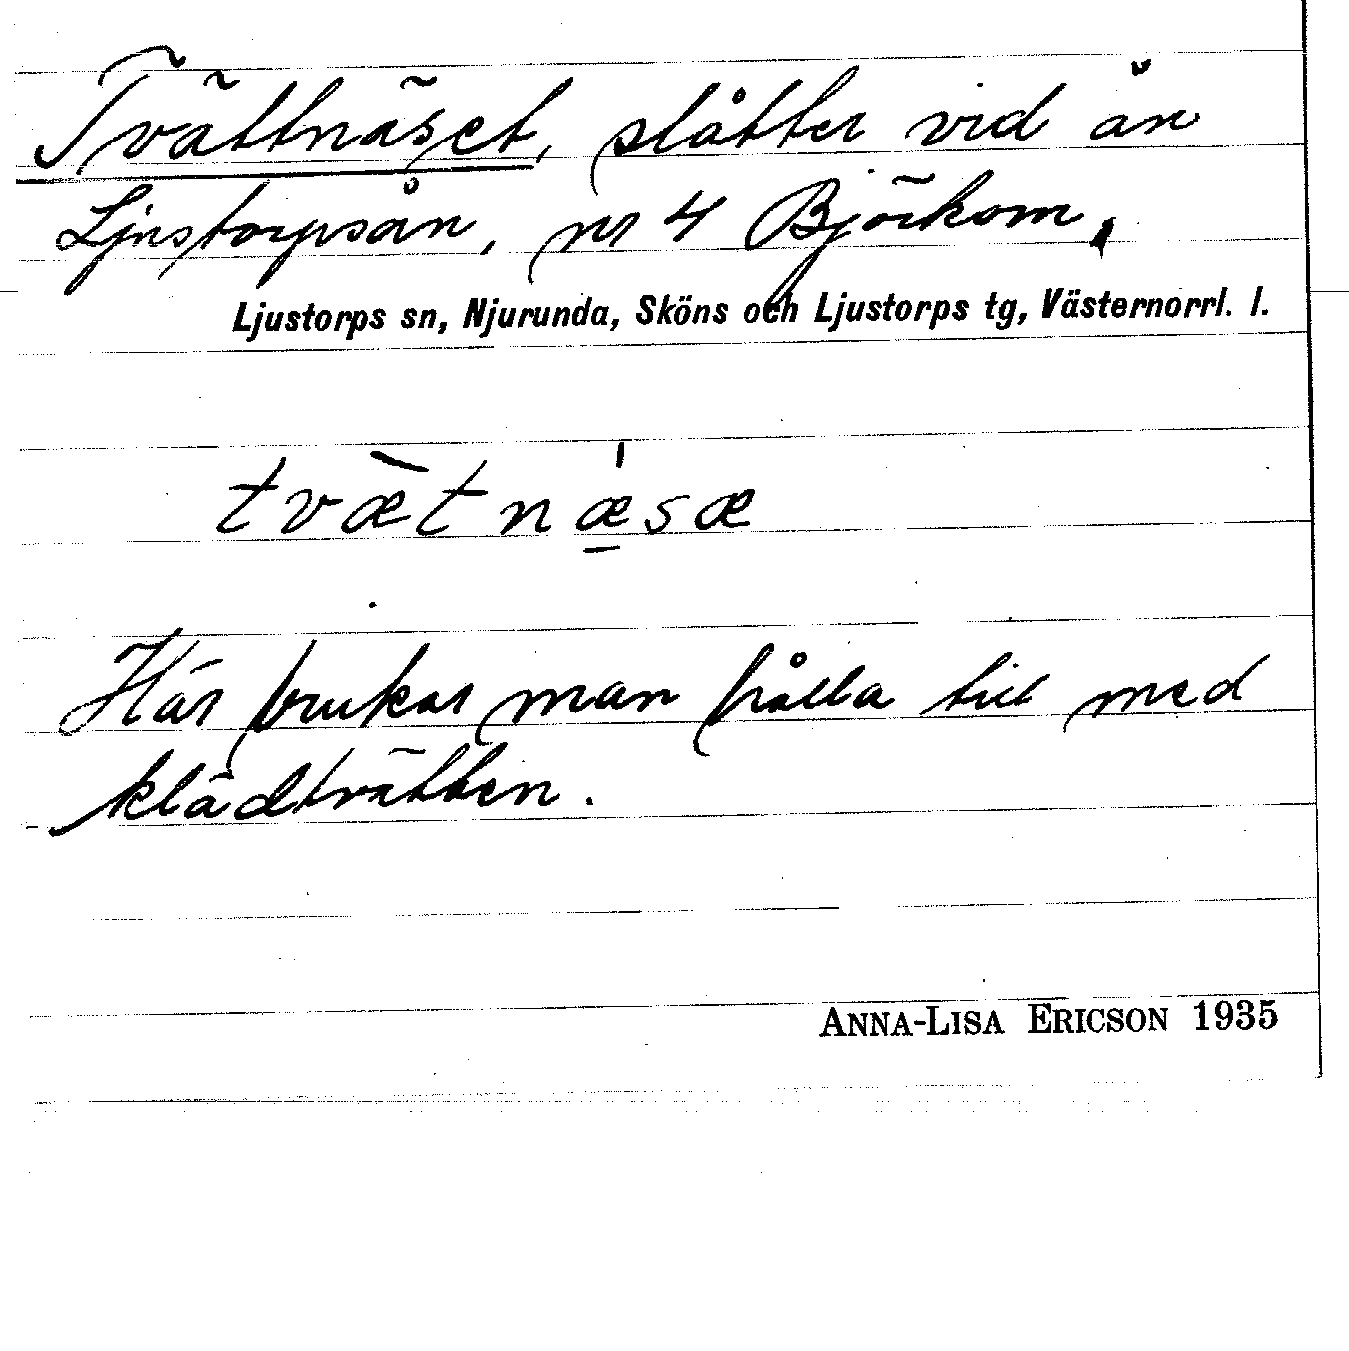 Tvättnäset, slåtter vid ån
Ljustorpsån, nr 4 Björkom,
Ljustorps sn, Njurunda, Sköns och Ljustorps tg, Västernorrl. l.
tvæ̀tnǽ̠sæ
Här brukar man hålla till med
klädtvätten.
ANNA-LISA ERICSON 1935